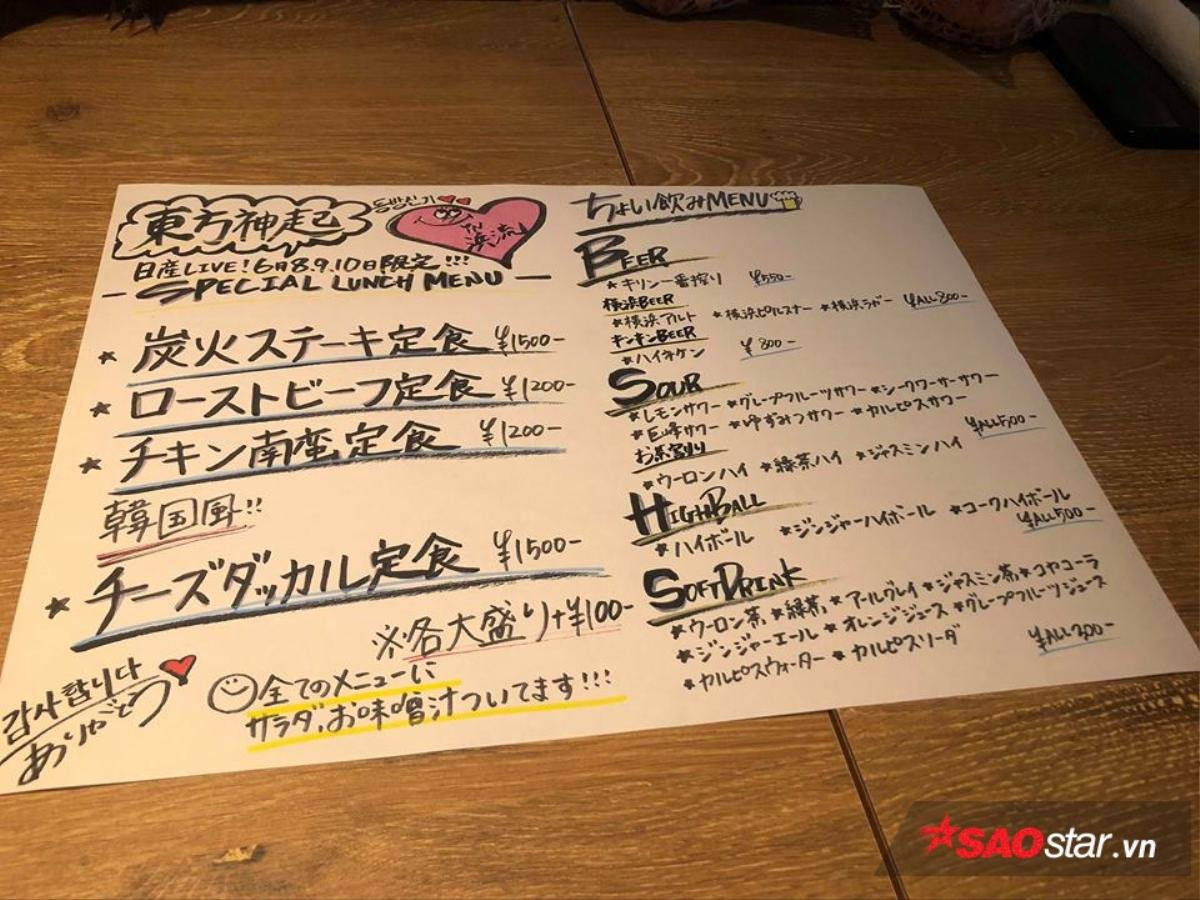 東方神起
동방신기
in
浜流
日産LIVE!6月8.9.10日限定!!!
- SPECIAL LUNCH MENU -
★ 炭火ステーキ定食 ¥1500-
★ ローストビーフ定食 ¥1200-
★ チキン南蛮定食 ¥1200-
韓国風!!
★ チーズダッカル定食 ¥1500-
※各大盛り+¥100-
감사합니다
ありがとう
全てのメニューに
サラダ、お味噌汁ついてます!!!
ちょい飲みMENU
BEER
★キリン一番搾り ¥550-
横浜BEER
★横浜アルト ★横浜ピルスナー ★横浜ラガー ¥ALL800-
キンキンBEER
★ハイネケン ¥800-
SOUR
★レモンサワー ★グレープフルーツサワー ★シークワーサーサワー
★巨峰サワー ★ゆずみつサワー ★カルピスサワー
¥ALL500-
お茶割り
★ウーロンハイ ★緑茶ハイ ★ジャスミンハイ
HIGHBALL
★ハイボール ★ジンジャーハイボール ★コークハイボール
¥ALL500-
SOFTDRINK
★ウーロン茶 ★緑茶 ★アールグレイ ★ジャスミン茶 ★コカコーラ
★ジンジャーエール ★オレンジジュース ★グレープフルーツジュース
★カルピスウォーター ★カルピスソーダ
SAOstar.vn